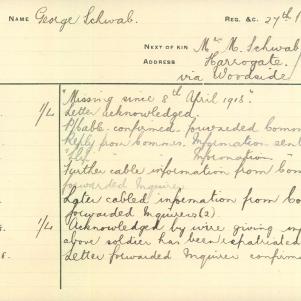 NAME George Schwab. REG. &C. 27th
NEXT OF KIN Mr M. Schwab
ADDRESS Harrogate.
via Woodside
"Missing since 8th April 1918"
1/4 Letter acknowledged.
P/Cable. confirmed. forwarded Comm
Reply from Commrs. Information sent
Information "
Further cable information from Com
forwarded Inquirer
Later cabled information from Co
forwarded Inquirers (2).
1/4 Acknowledged by wire giving inf
above soldier has been repatriated
8. Letter forwarded Inquirer confirma